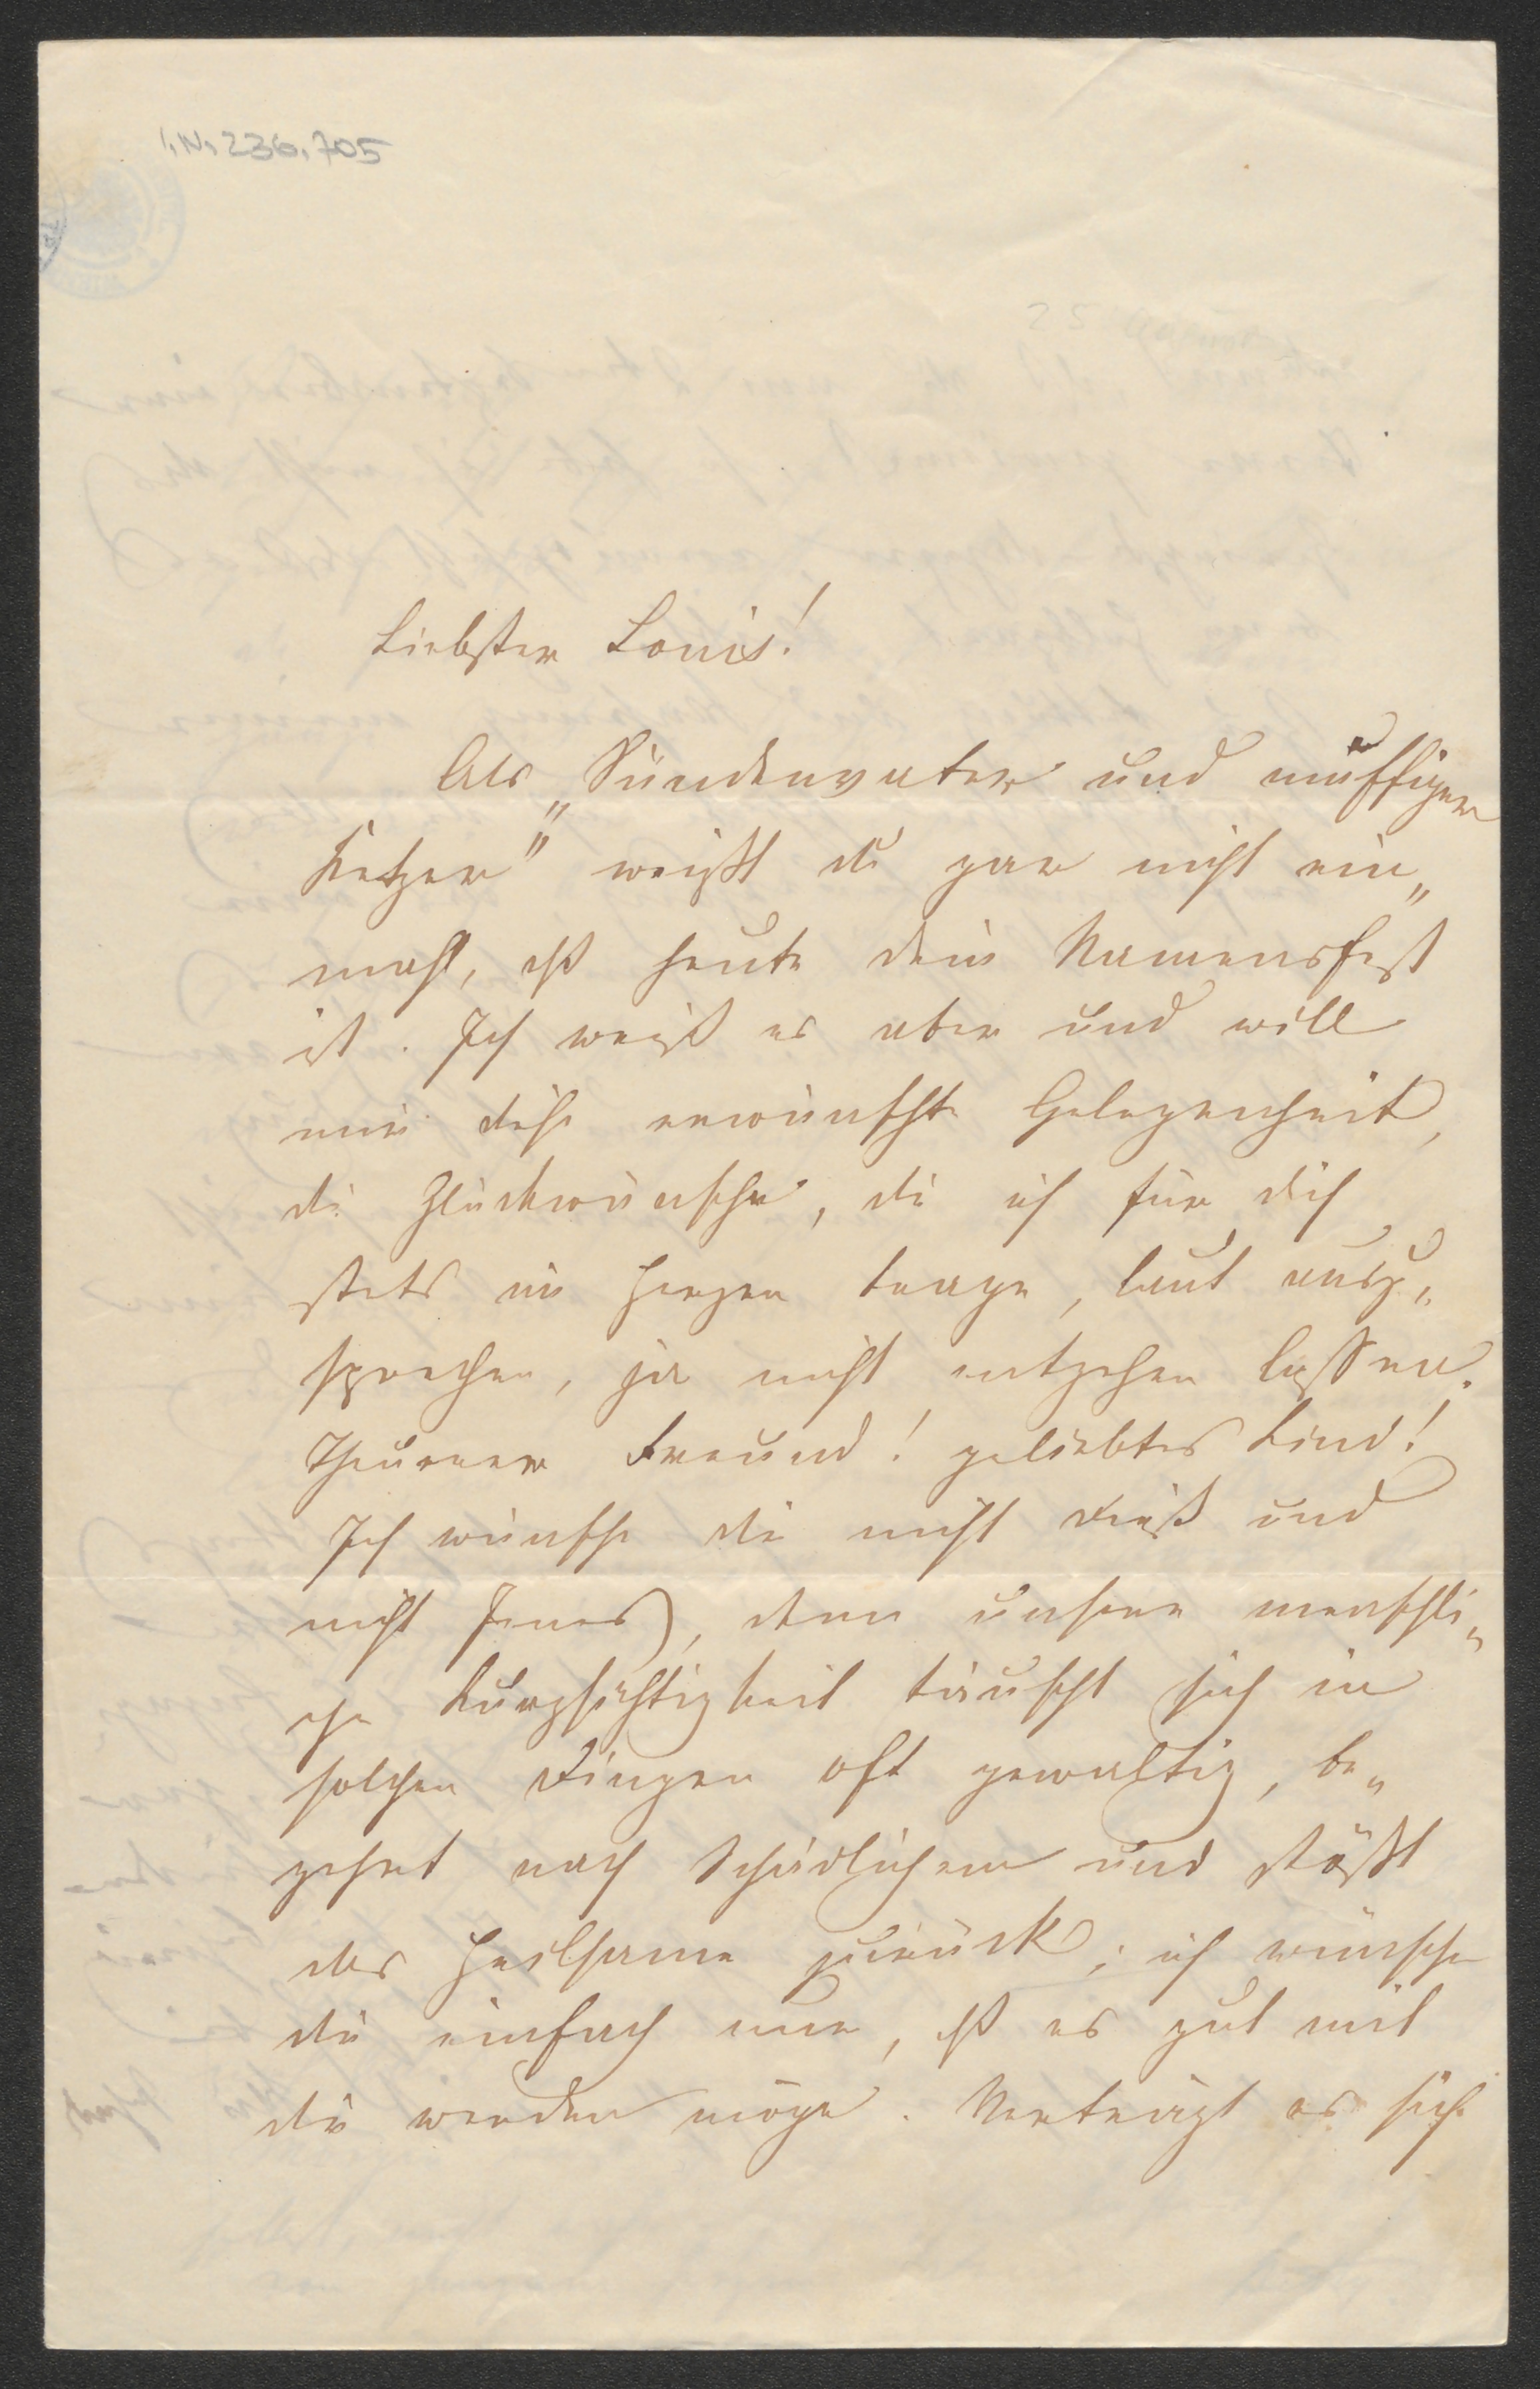 I.N. 236.705
Liebster Louis!
Als „Sündenvater und müffiger
Ketzer" weißt du gar nicht ein„
mahl, daß heute dein Namensfest
ist. Ich weiß es aber und will
mir diese erwünschte Gelegenheit,
die Glückwünsche, die ich für dich
stets im Herzen trage, laut auszu„
sprechen, ja nicht entgehen lassen.
Theurer Freund! geliebtes Kind!
Ich wünsche dir nicht Dieß und
nicht Jenes, denn unsere menschli„
che Kurzsichtigkeit täuscht sich in
solchen Dingen oft gewaltig, be„
gehrt nach Schädlichem und stößt
das Heilsame zurück; ich wünsche
dir einfach nur, daß es gut mit
dir werden möge. Verträgt es sich